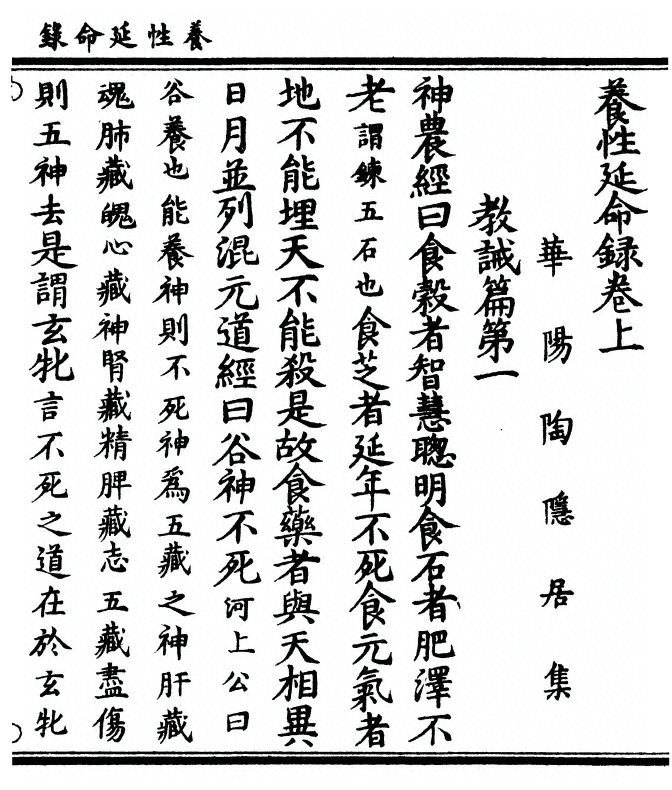 養性延命錄
養性延命録卷上
華陽陶隱居集
教誡篇第一
神農經曰食穀者智慧聰明食石者肥澤不
老謂鍊五石也食芝者延年不死食元氣者
地不能埋天不能殺是故食藥者與天相畢
日月並列混元道經曰谷神不死河上公曰
谷養也能養神則不死神爲五藏之神肝藏
魂肺藏魄心藏神腎藏精脾藏志五藏盡傷
則五神去是謂玄牝言不死之道在於玄牝